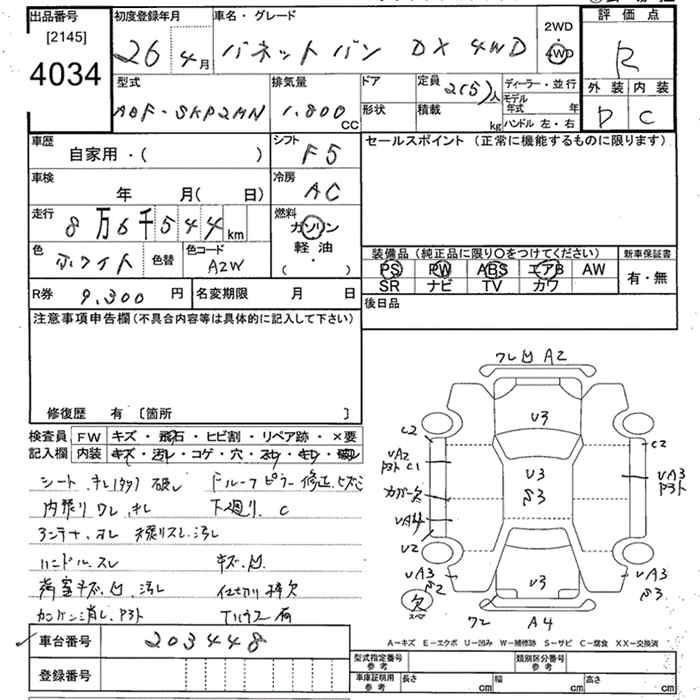 出品番号 初度登録年月 車名・グレード 2WD 評価点
[2145] 26年4月 バネットバン DX 4WD 4WD R
4034
型式 排気量 ドア 定員 2(5)人 ディーラー・並行 外装 内装
ABF-SKP2MN 1.800CC 形状 積載 kg モデル年式 年 D C
ハンドル 左・右
車歴 シフト セールスポイント(正常に機能するものに限ります)
自家用・( ) F5
車検 冷房
年 月( 日) AC
走行 燃料
8万6千544km ガソリン
軽油
・( )
色 ホワイト 色替 色コード A2W 装備品(純正品に限り○をつけてください) 新車保証書
PS PW ABS エアB AW 有・無
SR ナビ TV カワ
R券 9,300円 名変期限 月 日 後日品
注意事項申告欄(不具合内容等は具体的に記入して下さい)
修復歴 有 [箇所 ]
検査員 FW キズ・飛石・ヒビ割・リペア跡・×要
記入欄 内装 キズ・汚レ・コゲ・穴・スレ・キレ・破レ
シート キレ 破レ ドルーフピラー修正
内張リ ワレ キレ 下廻リ C
アンテナ 天張リスレ汚レ
ハンドルスレ キズ 凹
荷室キズ 凹 汚レ 欠
消し P跡 有
ワレ 凹 A2
U3
C2 C2
UA2
P跡 C1
U3
S3
UA3
P跡
カバー欠
UA4
U2
UA3
S2
U3
UA3
S3
欠
スペア
ワレ A4
A-キズ E-エクボ U-凹み W-補修跡 S-サビ C-腐食 XX-交換済
車台番号 203448
登録番号
型式指定番号 参考 類別区分番号 参考
車庫証明用 参考 長さ cm 幅 cm 高さ cm